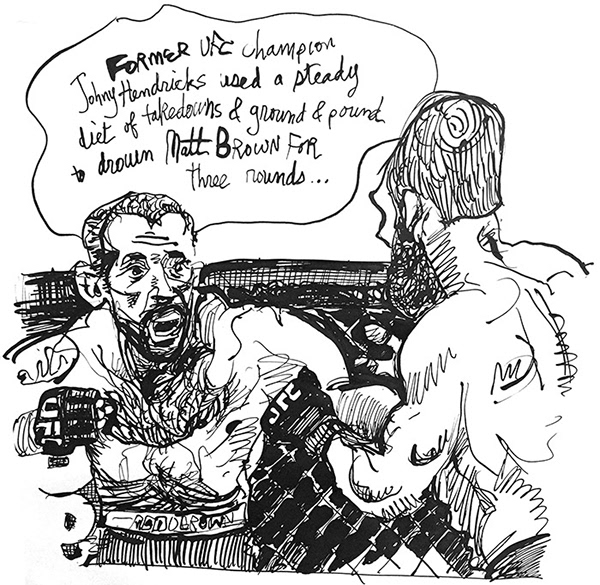 Former UFC champion
Johny Hendricks used a steady
diet of takedowns & ground & pound
to drown Matt Brown For
three rounds...
UFC